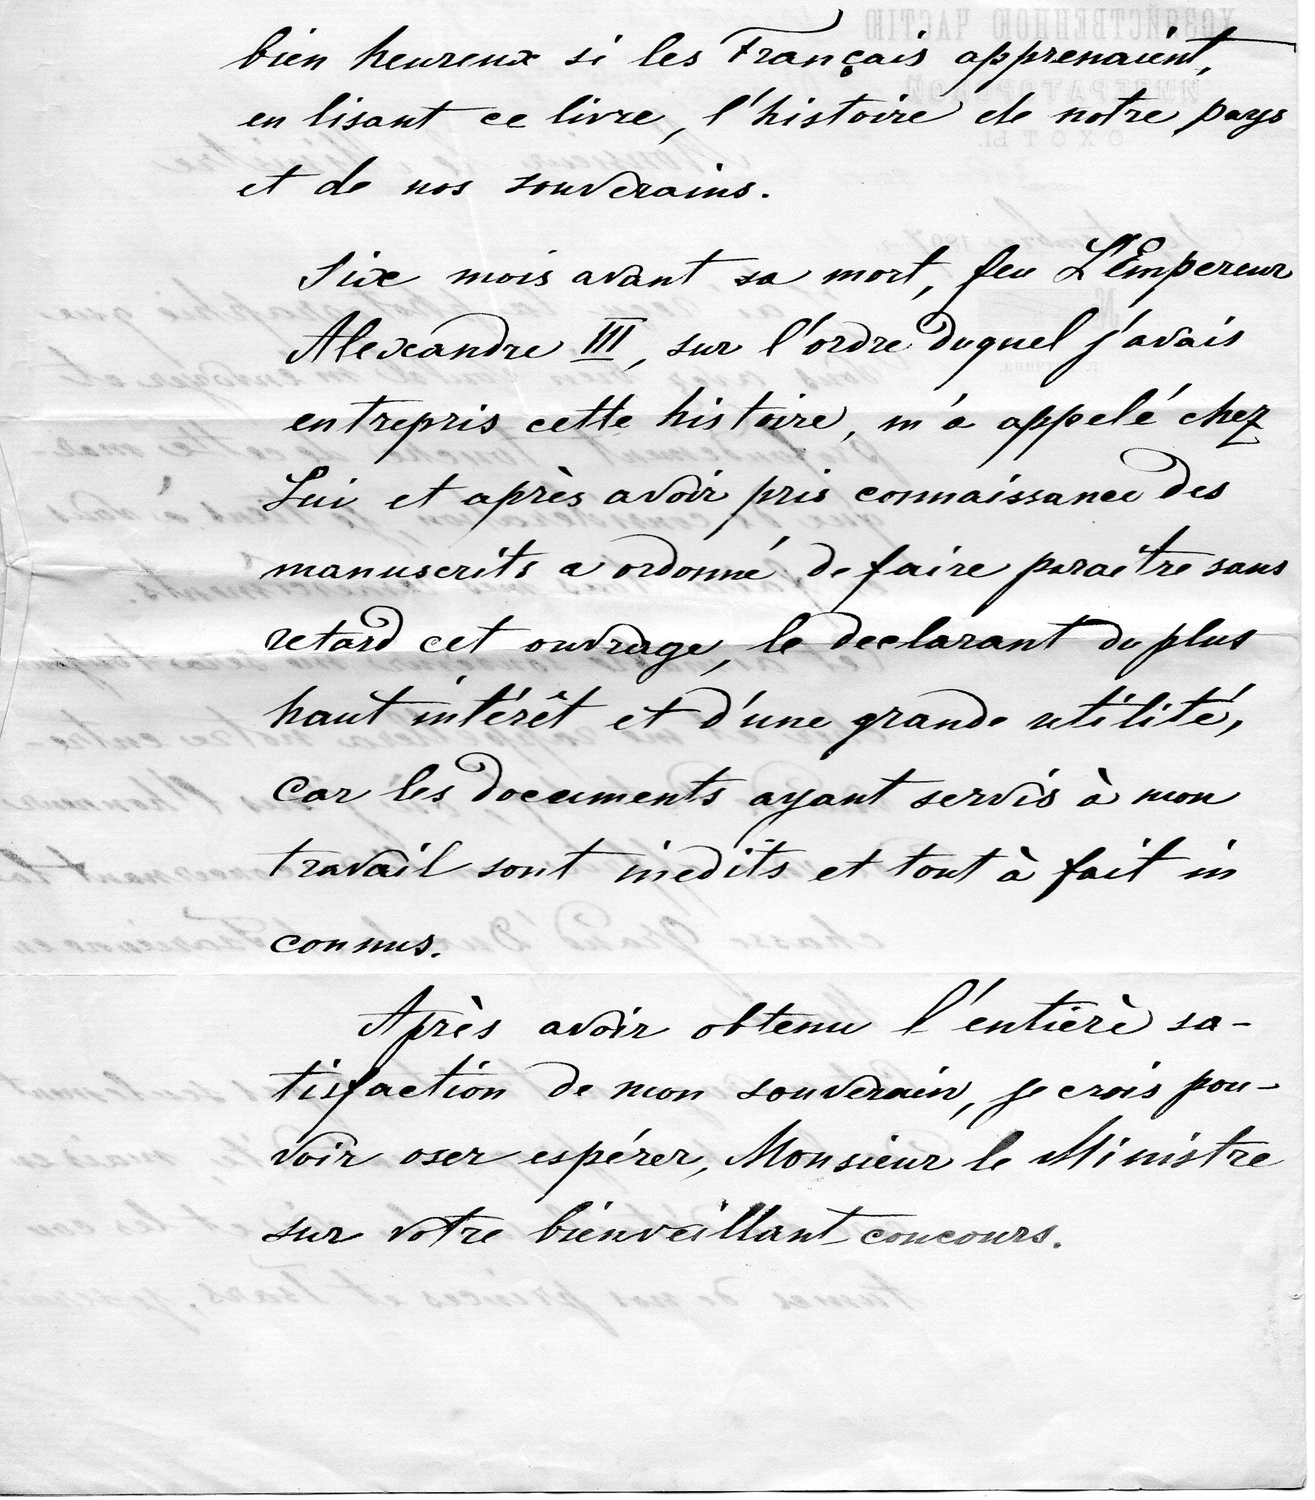 bien heureux si les Français apprenaient,
en lisant ce livre, l'histoire de notre pays
et de nos souverains.
Six mois avant sa mort, feu L'Empereur
Alexandre III, sur l'ordre duquel j'avais
entrepris cette histoire, m'a appelé chez
Lui et après avoir pris connaissance des
manuscrits a ordonné de faire paraître sans
retard cet ouvrage, le declarant du plus
haut intérêt et d'une grande utilité,
car les documents ayant servis à mon
travail sont inedits et tout à fait in
connus.
Après avoir obtenu l'entière sa-
tisfaction de mon souverain, je crois pou-
voir oser espérer, Monsieur le Ministre
sur votre bienveillant concours.